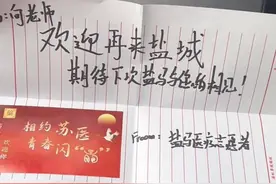 :向老师
欢迎再来盐城
期待下次盐马与您的相见!
相约苏医
青春闪"晶"
From: 盐马医疗志愿者